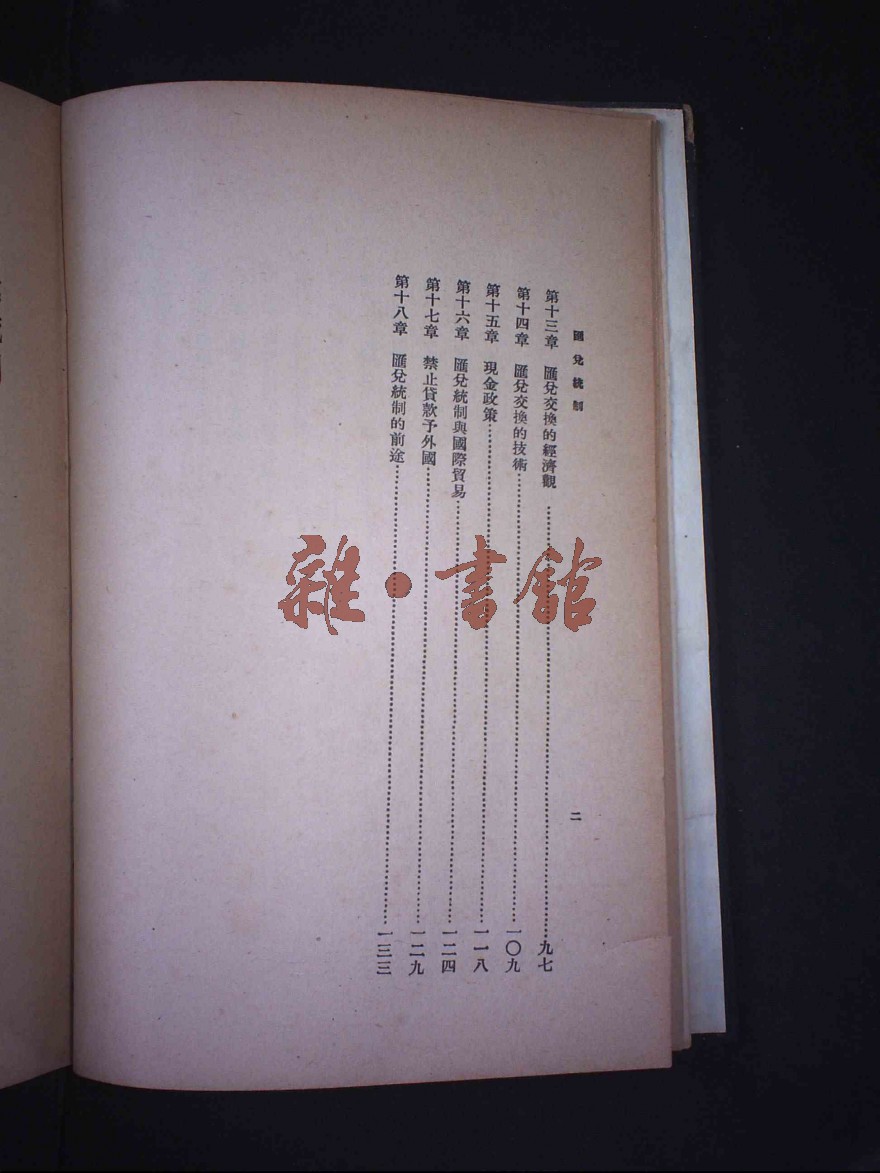 匯兌統制
二
第十三章　匯兌交換的經濟觀……九七
第十四章　匯兌交換的技術……一〇九
第十五章　現金政策……一一八
第十六章　匯兌統制與國際貿易……一二四
第十七章　禁止貸款予外國……一二九
第十八章　匯兌統制的前途……一三三
雜·書館